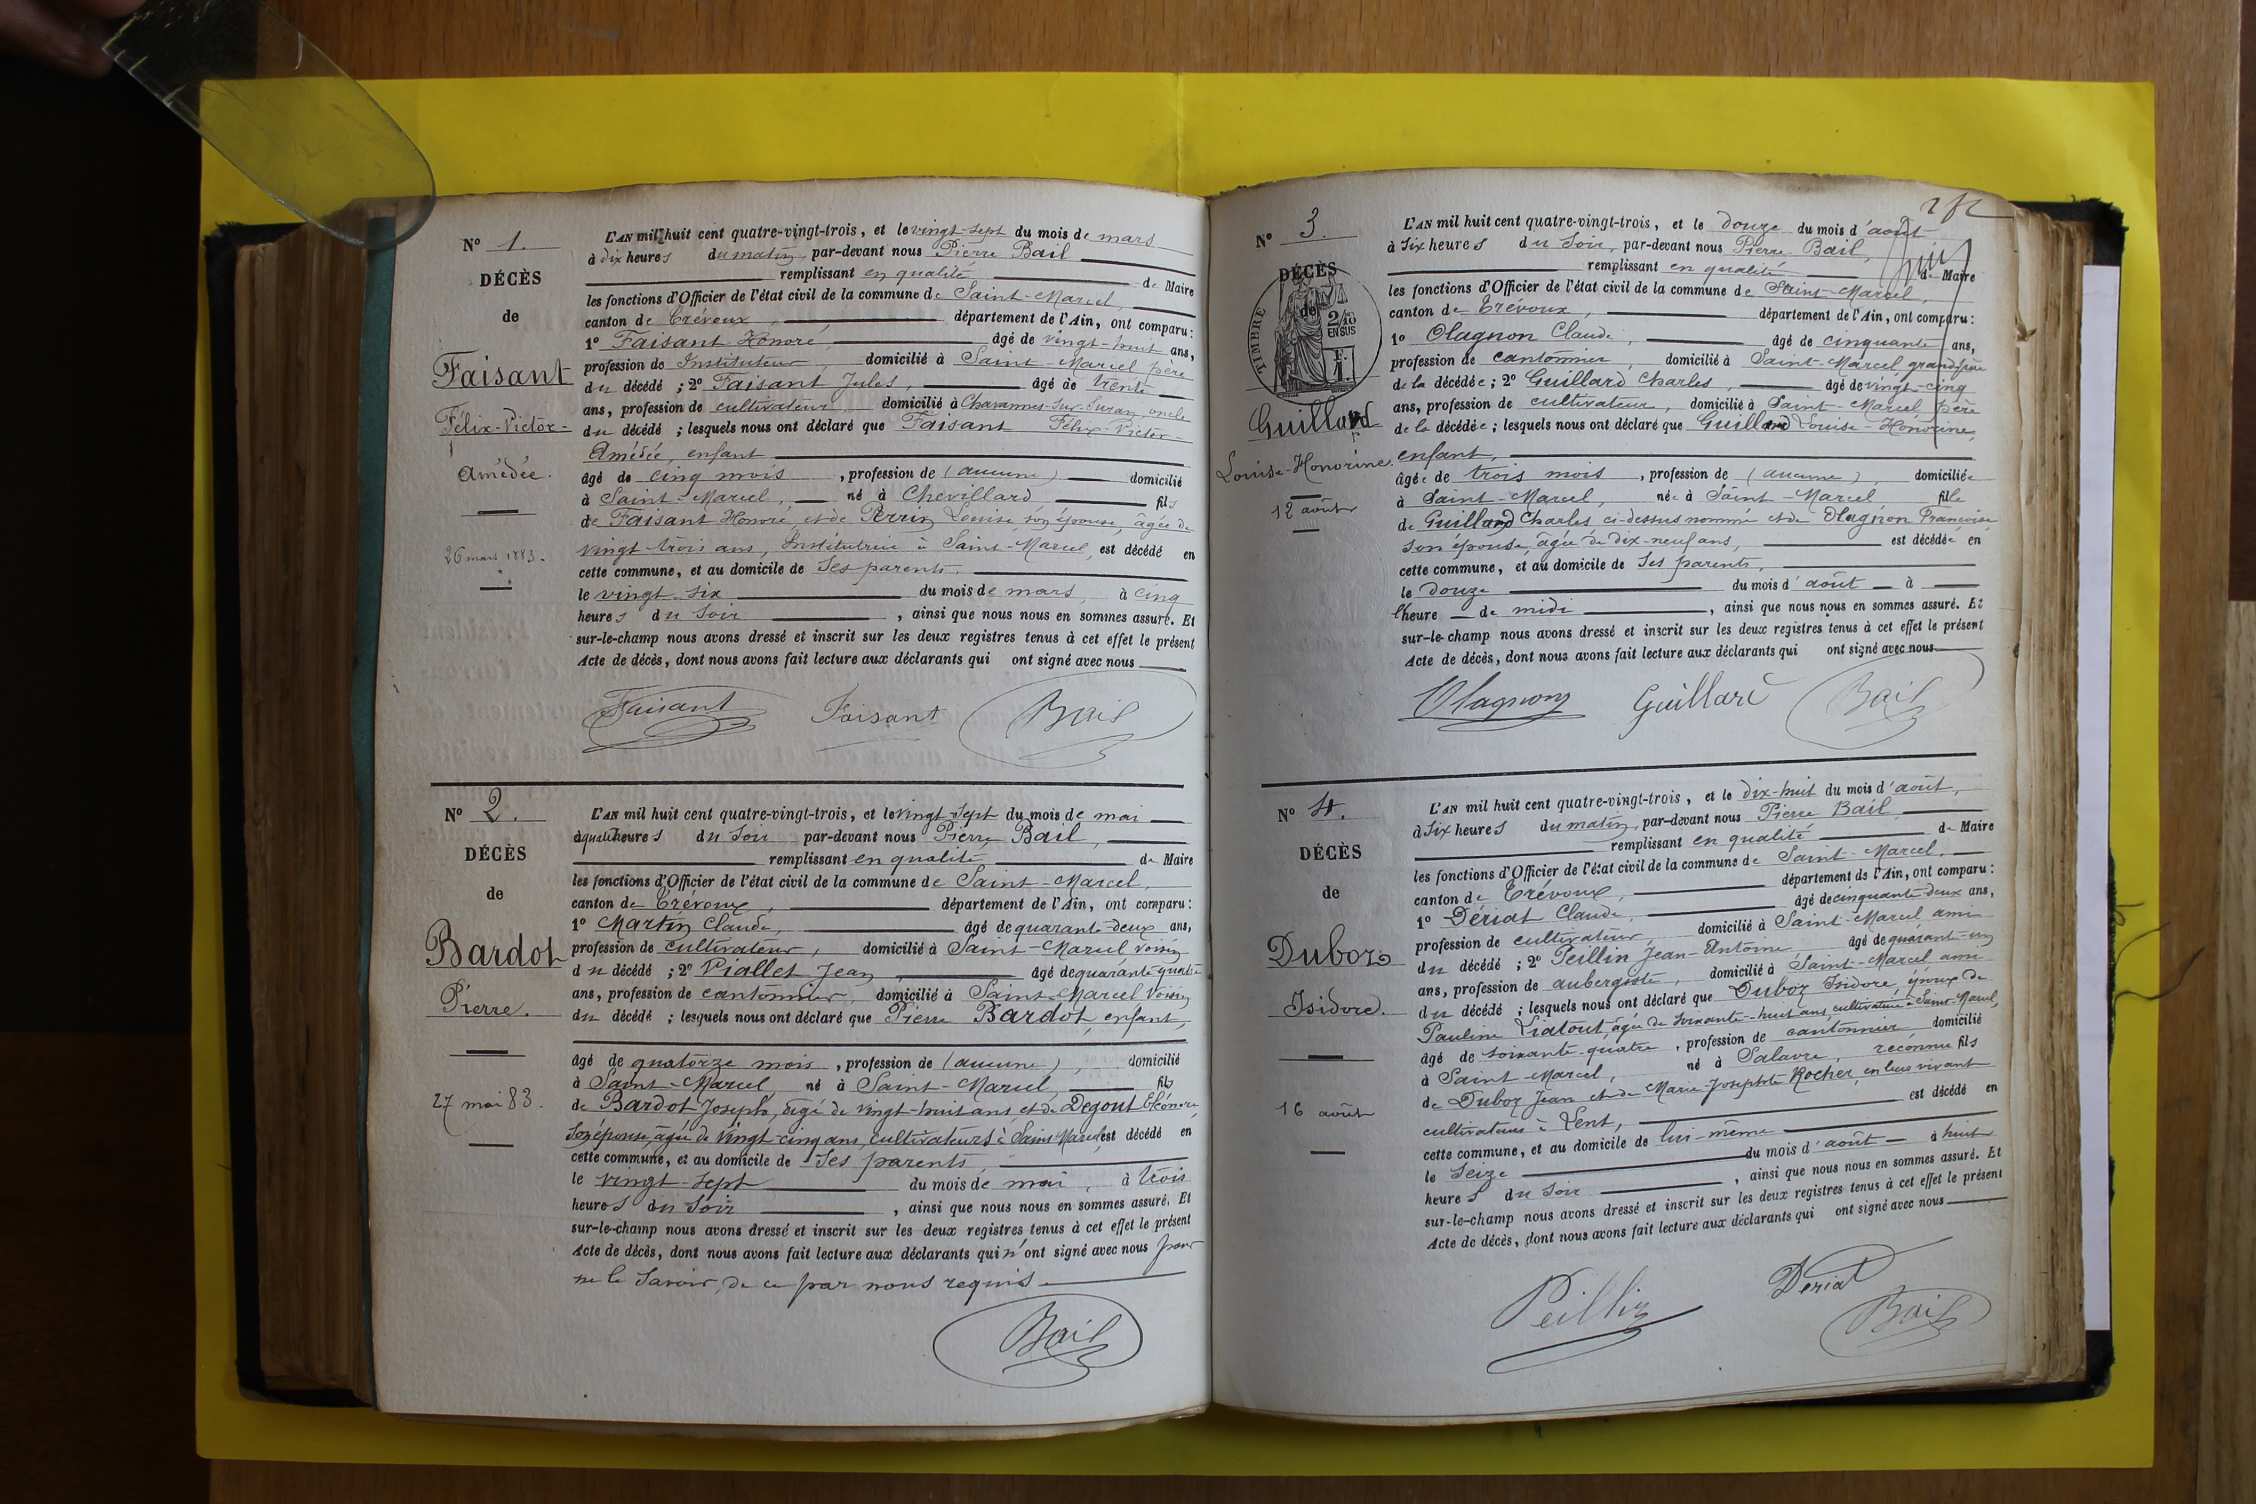 N° 1.
DÉCÈS
de
Faisant
Félix-Victor-
Amédée.
26 mars 1883.
L'AN mil huit cent quatre-vingt-trois, et le vingt-sept du mois de mars
à dix heures du matin, par-devant nous Pierre Bail
remplissant en qualité de Maire
les fonctions d'Officier de l'état civil de la commune de Saint-Marcel,
canton de Trévoux, département de l'Ain, ont comparu:
1° Faisant Honoré, âgé de vingt-huit ans,
profession de Instituteur, domicilié à Saint-Marcel père
du décédé ; 2° Faisant Jules, âgé de trente
ans, profession de cultivateur domicilié à Chavannes-sur-Suran, oncle
du décédé ; lesquels nous ont déclaré que Faisant Félix-Victor-
Amédée, enfant
âgé de cinq mois, profession de (aucune) domicilié
à Saint-Marcel, né à Chevillard fils
de Faisant Honoré, et de Perrin Louise son épouse, âgée de
vingt trois ans, Institutrice à Saint-Marcel, est décédé en
cette commune, et au domicile de ses parents,
le vingt-six du mois de mars, à cinq
heures du soir, ainsi que nous nous en sommes assuré. Et
sur-le-champ nous avons dressé et inscrit sur les deux registres tenus à cet effet le présent
Acte de décès, dont nous avons fait lecture aux déclarants qui ont signé avec nous
Faisant Faisant Bail
N° 2.
DÉCÈS
de
Bardot
Pierre.
27 mai 83.
L'AN mil huit cent quatre-vingt-trois, et le vingt-sept du mois de mai
à quatre heures du soir par-devant nous Pierre Bail,
remplissant en qualité de Maire
les fonctions d'Officier de l'état civil de la commune de Saint-Marcel,
canton de Trévoux, département de l'Ain, ont comparu:
1° Martin Claude, âgé de quarante-deux ans,
profession de cultivateur, domicilié à Saint-Marcel voisin
du décédé ; 2° Viallet Jean, âgé de quarante quatre
ans, profession de cantonnier, domicilié à Saint-Marcel voisin
du décédé ; lesquels nous ont déclaré que Pierre Bardot, enfant,
âgé de quatorze mois, profession de (aucune), domicilié
à Saint-Marcel, né à Saint-Marcel, fils
de Bardot Joseph, âgé de vingt-huit ans et de Degout Eléonore
son épouse, âgée de vingt-cinq ans, cultivateurs à Saint-Marcel, est décédé en
cette commune, et au domicile de ses parents,
le vingt-sept du mois de mai, à trois
heures du soir, ainsi que nous nous en sommes assuré. Et
sur-le-champ nous avons dressé et inscrit sur les deux registres tenus à cet effet le présent
Acte de décès, dont nous avons fait lecture aux déclarants qui n'ont signé avec nous pour
ne le savoir, de ce par nous requis
Bail
N° 3.
DÉCÈS
de
TIMBRE
2/10
EN SUS
Guillard
Louise-Honorine.
12 août
L'AN mil huit cent quatre-vingt-trois, et le douze du mois d'août
à six heures du soir, par-devant nous Pierre Bail,
remplissant en qualité de Maire
les fonctions d'Officier de l'état civil de la commune de Saint-Marcel,
canton de Trévoux, département de l'Ain, ont comparu:
1° Olagnon Claude, âgé de cinquante ans,
profession de cantonnier, domicilié à Saint-Marcel, grand père
de la décédée ; 2° Guillard Charles, âgé de vingt-cinq
ans, profession de cultivateur, domicilié à Saint-Marcel père
de la décédée ; lesquels nous ont déclaré que Guillard Louise-Honorine,
enfant,
âgée de trois mois, profession de (aucune), domiciliée
à Saint-Marcel, née à Saint-Marcel fille
de Guillard Charles ci-dessus nommé et de Olagnon Françoise
son épouse, âgée de dix-neuf ans, est décédée en
cette commune, et au domicile de ses parents,
le douze du mois d'août à
l'heure de midi, ainsi que nous nous en sommes assuré. Et
sur-le-champ nous avons dressé et inscrit sur les deux registres tenus à cet effet le présent
Acte de décès, dont nous avons fait lecture aux déclarants qui ont signé avec nous
Olagnon Guillard Bail
N° 4.
DÉCÈS
de
Duboz
Isidore.
16 août
L'AN mil huit cent quatre-vingt-trois, et le dix-huit du mois d'août,
à six heures du matin, par-devant nous Pierre Bail,
remplissant en qualité de Maire
les fonctions d'Officier de l'état civil de la commune de Saint-Marcel,
canton de Trévoux, département de l'Ain, ont comparu:
1° Dériat Claude, âgé de cinquante-deux ans,
profession de cultivateur domicilié à Saint-Marcel ami
du décédé ; 2° Peillin Jean-Antoine âgé de quarante-un
ans, profession de aubergiste, domicilié à Saint-Marcel ami
du décédé ; lesquels nous ont déclaré que Duboz Isidore, époux de
Pauline Liatout, âgée de soixante-huit ans, cultivatrice à Saint-Marcel,
âgé de soixante-quatre, profession de cantonnier domicilié
à Saint-Marcel, né à Salavre, reconnu fils
de Duboz Jean et de Marie-Josephte Rocher, en leur vivant
cultivateurs à Lent, est décédé en
cette commune, et au domicile de lui-même
le seize du mois d'août à huit
heures du soir, ainsi que nous nous en sommes assuré. Et
sur-le-champ nous avons dressé et inscrit sur les deux registres tenus à cet effet le présent
Acte de décès, dont nous avons fait lecture aux déclarants qui ont signé avec nous
Peillin Deriat Bail